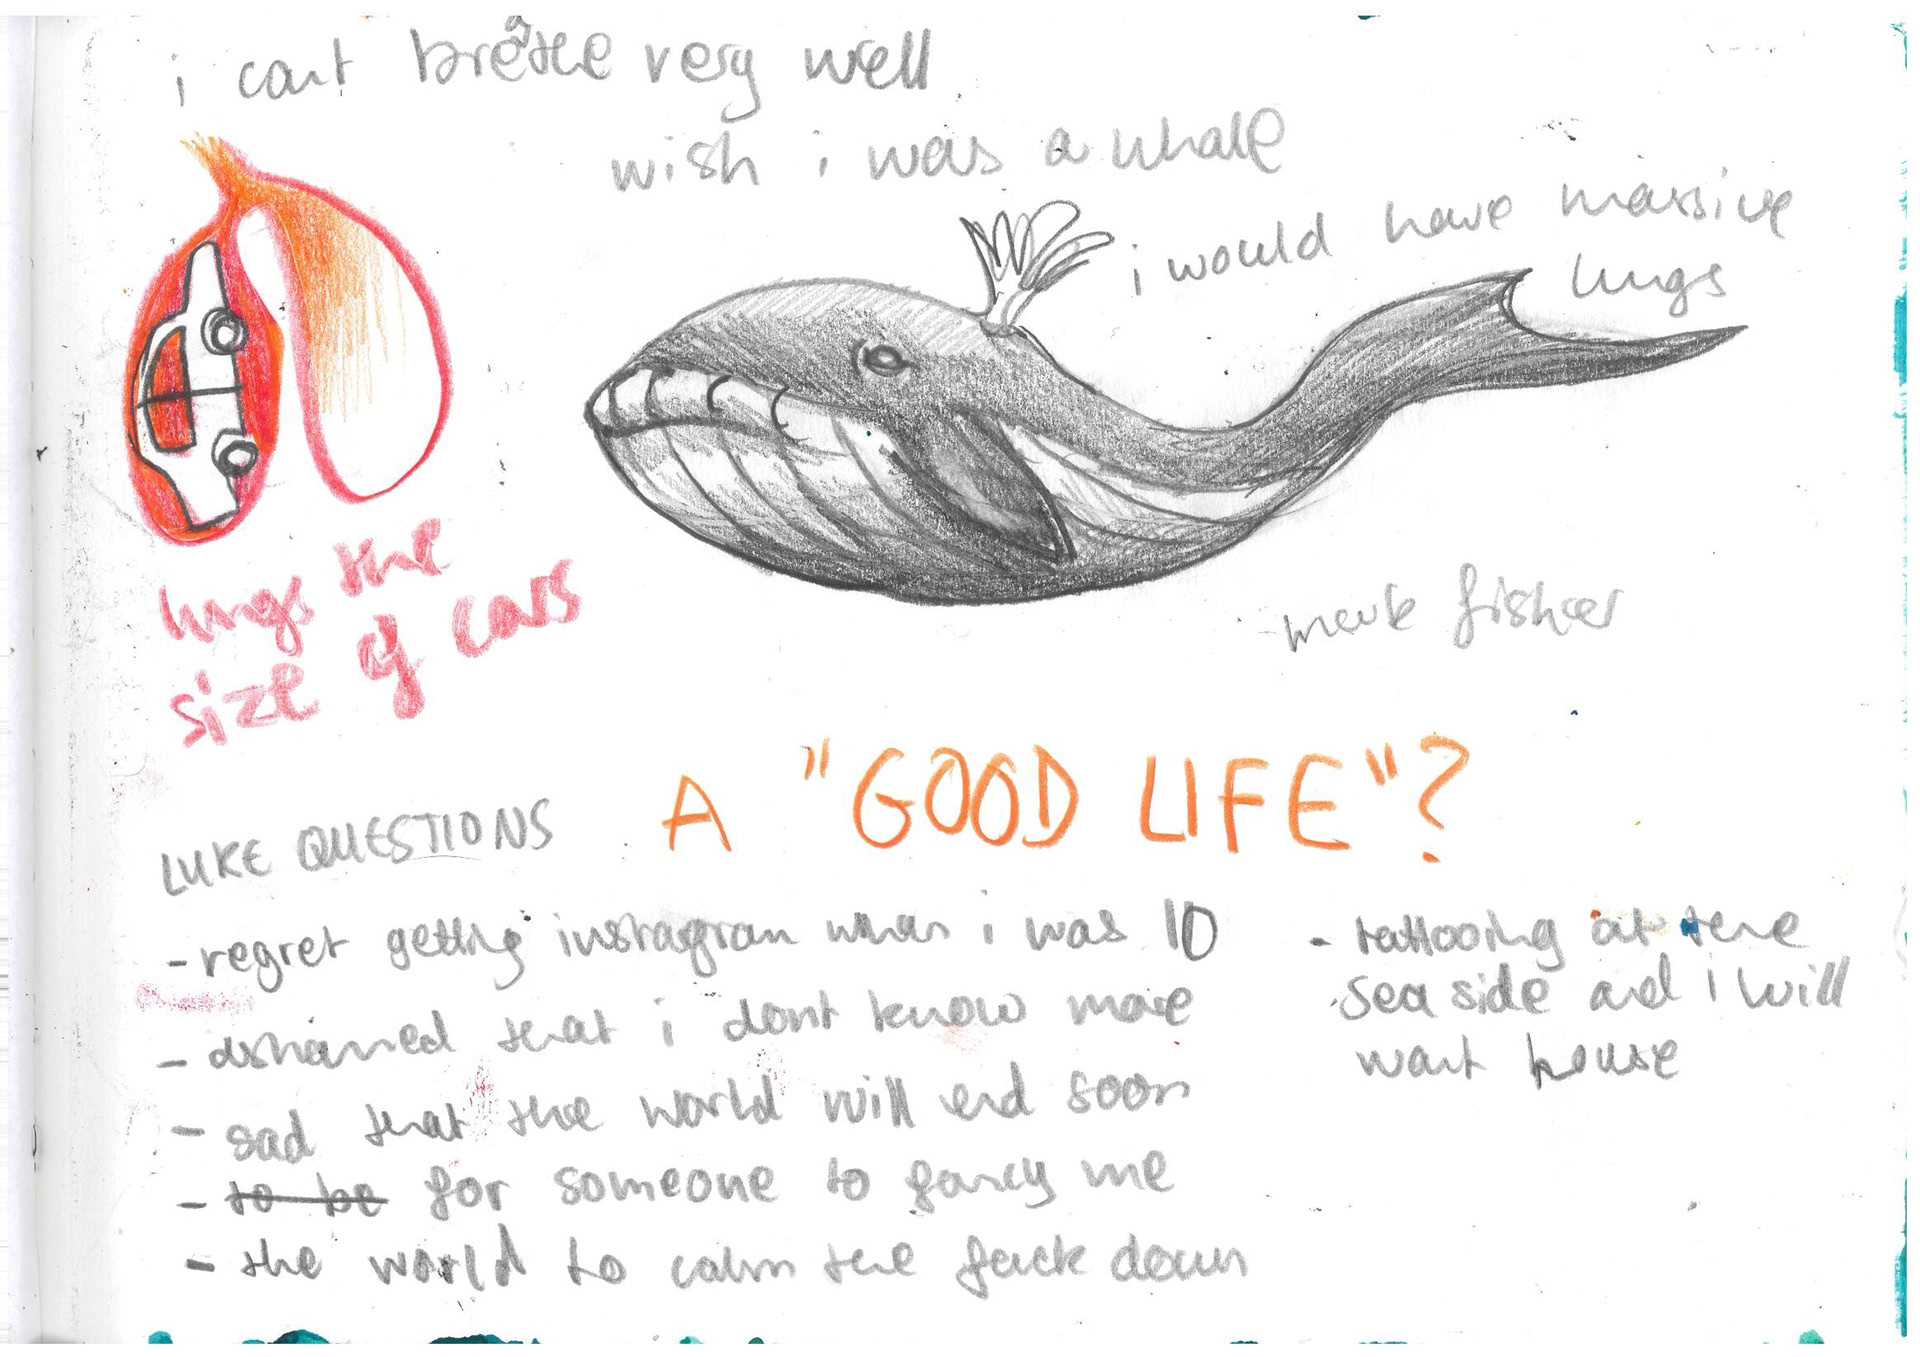 i cant breathe very well
wish i was a whale
i would have massive
lungs
lungs the
size of cars
-mark fisher
A "GOOD LIFE"?
LUKE QUESTIONS
- regret getting instagram when i was 10
- ashamed that i dont know more
- sad that the world will end soon
- to be for someone to fancy me
- the world to calm the fuck down
- tattooing at the
sea side and i will
want house